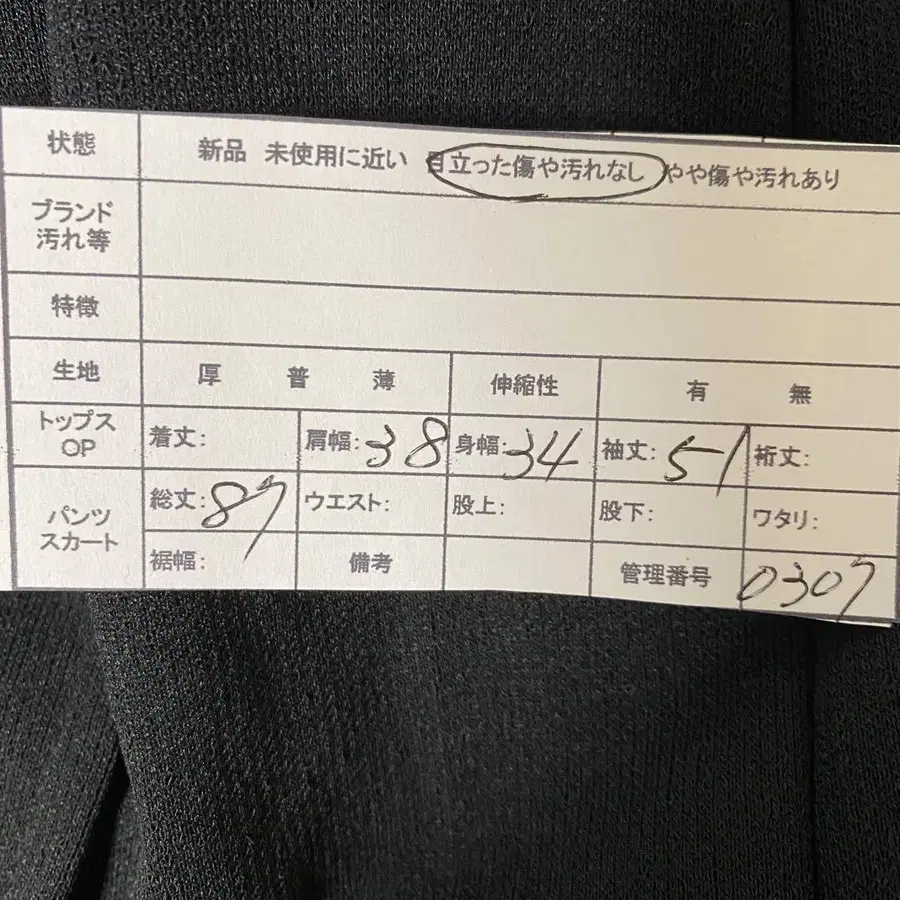 状態 新品 未使用に近い 目立った傷や汚れなし やや傷や汚れあり
ブランド
汚れ等
特徴
生地 厚 普 薄 伸縮性 有 無
トップス
OP
着丈: 肩幅:38 身幅:34 袖丈:51 裄丈:
パンツ
スカート
総丈:87 ウエスト: 股上: 股下: ワタリ:
裾幅: 備考 管理番号 0307